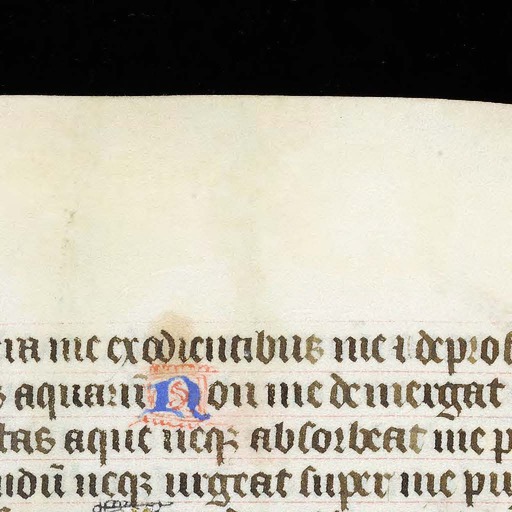 me exodientibus me ⁊ de prof
aquarū Non me demergat
tas aque neqꝫ absorbeat me p
neqꝫ urgeat super me pu